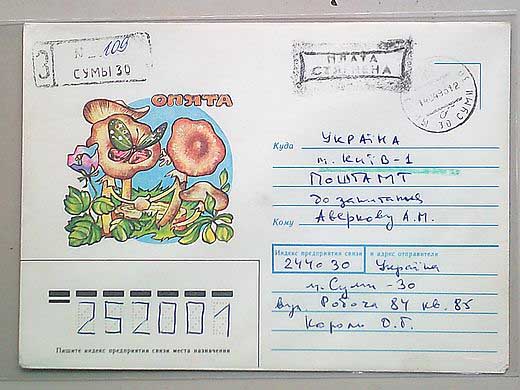 З
№ 109
СУМЫ 30
ПЛАТА
СТЯГНЕНА
30 СУМИ
ОПЯТА
Куда УКРАЇНА
м. КИЇВ-1
ПОШТАМТ
до запитання
Кому Аверкову А.М.
Индекс предприятия связи и адрес отправителя
244030 Україна
м. Суми - 30
вул. Робоча 84 кв. 85
Король О.Г.
252001
Пишите индекс предприятия связи места назначения